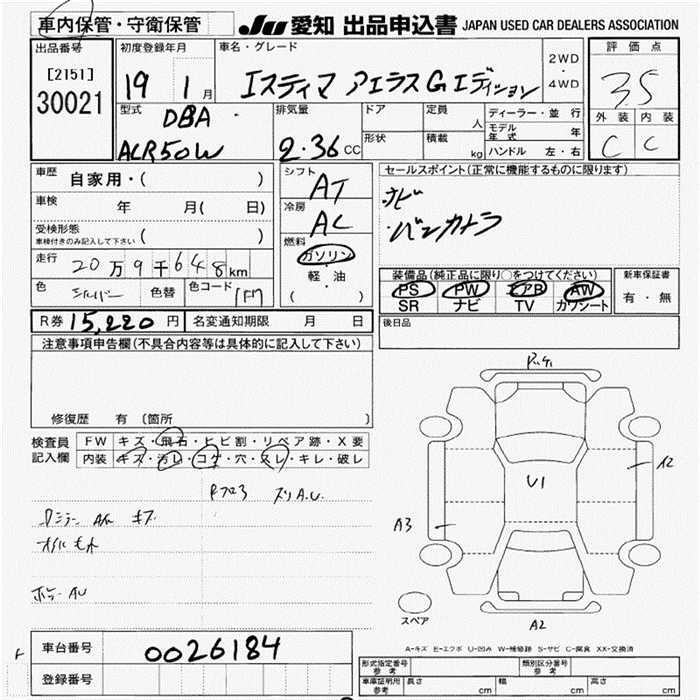 車内保管・守衛保管 JU 愛知 出品申込書 JAPAN USED CAR DEALERS ASSOCIATION
出品番号 初度登録年月 車名・グレード 2WD・4WD 評価点
[2151] 30021 19 1月 エスティマ アエラスGエディション 35
型式 DBA ALR50W 排気量 2.36CC ドア 形状 定員 人 積載 kg
ディーラー・並行
モデル年式 年
ハンドル 左・右
外装 内装
C C
車歴 自家用・( ) シフト AT セールスポイント(正常に機能するものに限ります)
車検 年 月( 日) 冷房 AC ナビ
受検形態 車検付きのみ記入して下さい ( ) バンカメラ
燃料 ガソリン・軽・油 ( )
走行 20万9千648km
色 シルバー 色替 色コード 1F7
装備品(純正品に限り○をつけてください) 新車保証書
PS PW エアB AW 有・無
SR ナビ TV カワシート
R券 15,220円 名変通知期限 月 日 後日品
注意事項申告欄(不具合内容等は具体的に記入して下さい)
修復歴 有 〔箇所
検査員記入欄 FW キズ・飛石・ヒビ割・リペア跡・X要
内装 キズ・汚レ・コゲ・穴・スレ・キレ・破レ
U1
A2
A3
スペア
A2
A-キズ E-エクボ U-凹み W-補修跡 S-サビ C-腐食 XX-交換済
車台番号 0026184
登録番号
形式指定番号 参考 類別区分番号 参考
車庫証明用 参考 長さ cm 幅 cm 高さ cm